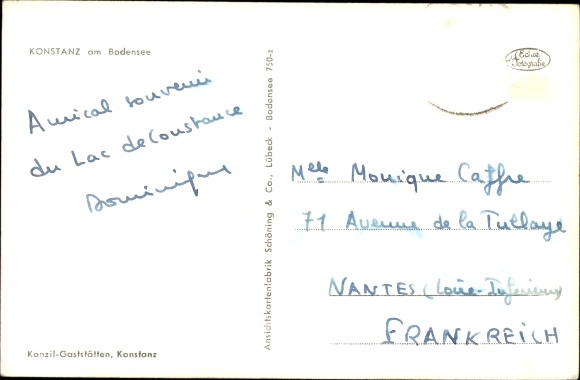 KONSTANZ am Bodensee
Amical souvenir
du Lac de Constance
Dominique
Konzil-Gaststätten, Konstanz
Ansichtskartenfabrik Schöning & Co., Lübeck - Bodensee 750-z
Echte
Fotografie
Melle Monique Caffre
71 Avenue de la Tullaye
NANTES (Loire-Inferieure)
FRANKREICH